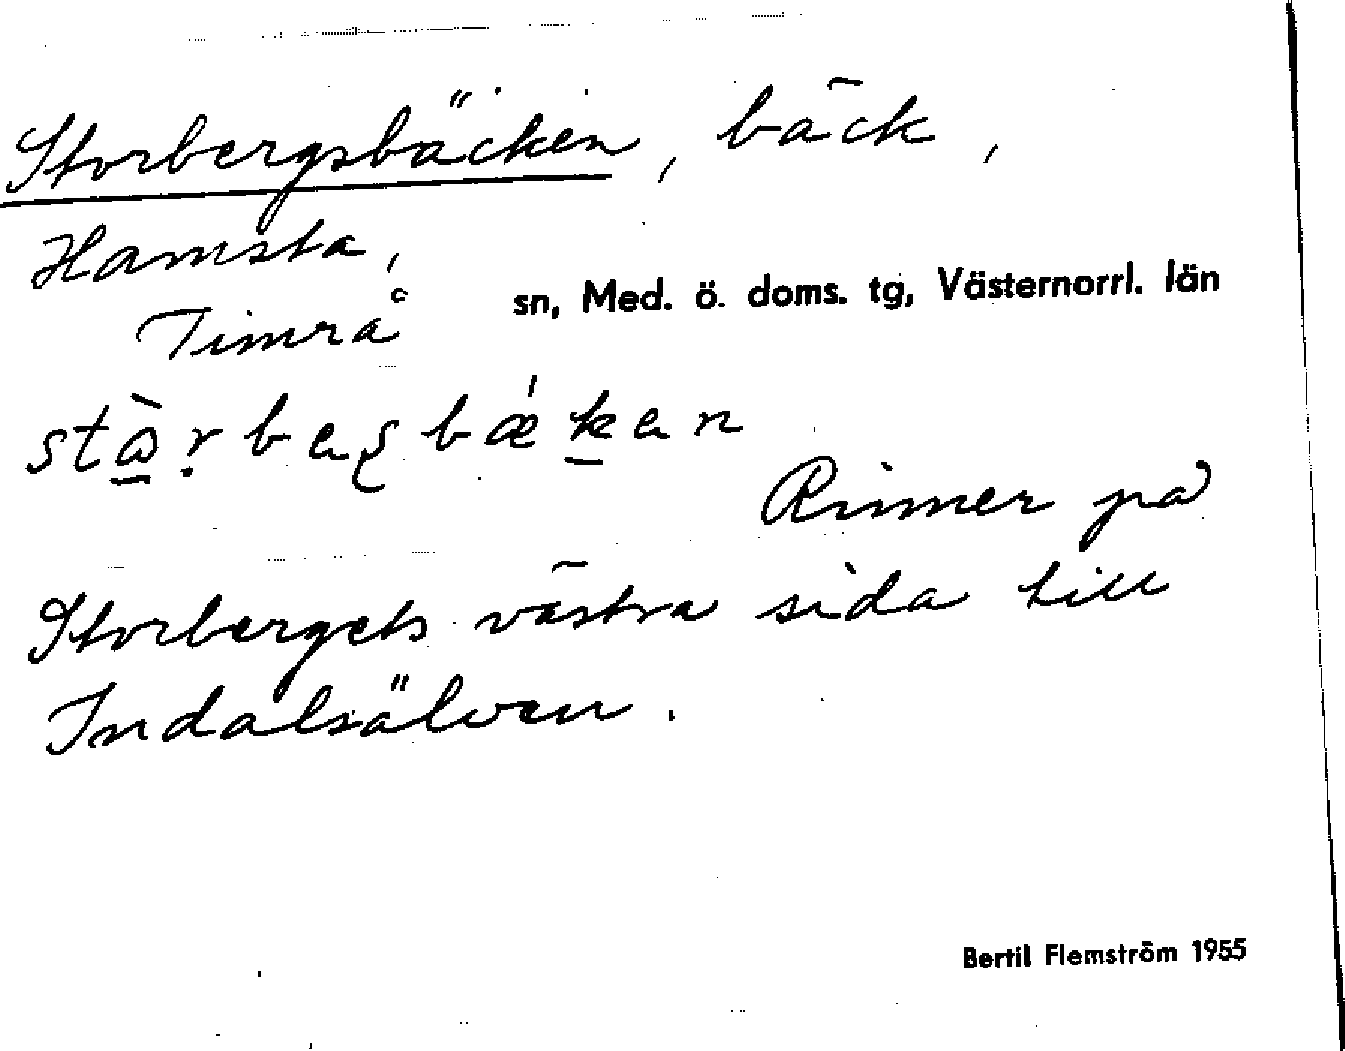 Storbergsbäcken, bäck,
Hamsta,
Timrå sn, Med. ö. doms. tg, Västernorrl. län
Rinner på
Storbergets västra sida till
Indalsälven.
Bertil Flemström 1955